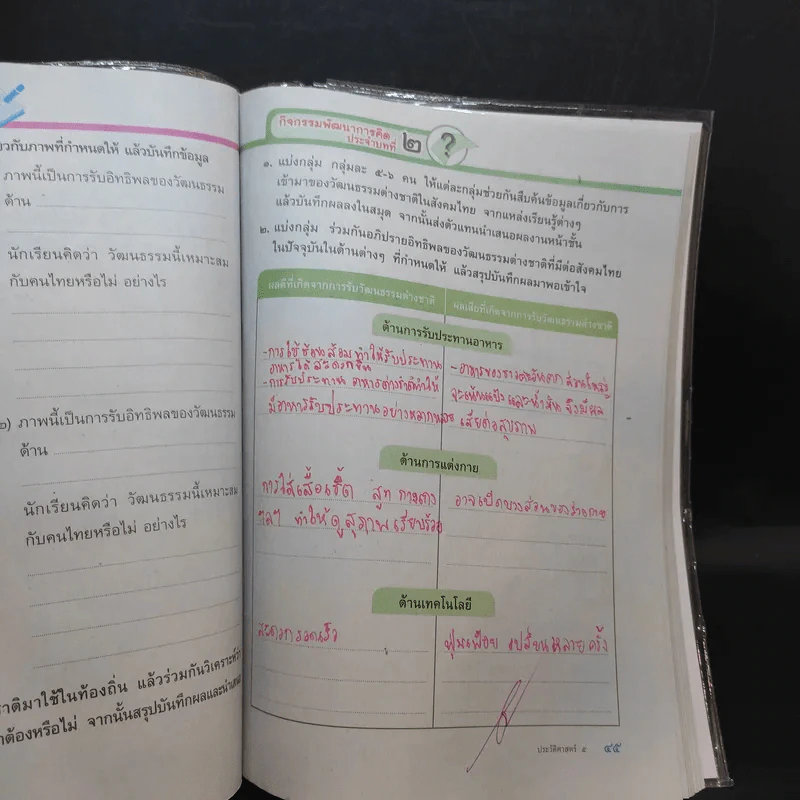 กี่ยวกับภาพที่กำหนดให้ แล้วบันทึกข้อมูล
ภาพนี้เป็นการรับอิทธิพลของวัฒนธรรม
ด้าน
นักเรียนคิดว่า วัฒนธรรมนี้เหมาะสม
กับคนไทยหรือไม่ อย่างไร
๒) ภาพนี้เป็นการรับอิทธิพลของวัฒนธรรม
ด้าน
นักเรียนคิดว่า วัฒนธรรมนี้เหมาะสม
กับคนไทยหรือไม่ อย่างไร
ชาติมาใช้ในท้องถิ่น แล้วร่วมกันวิเคราะห์ว่า
าต้องหรือไม่ จากนั้นสรุปบันทึกผลและนำเสนอ
กิจกรรมพัฒนาการคิด
ประจำบทที่ ๒ ?
๑. แบ่งกลุ่ม กลุ่มละ ๕-๖ คน ให้แต่ละกลุ่มช่วยกันสืบค้นข้อมูลเกี่ยวกับการ
เข้ามาของวัฒนธรรมต่างชาติในสังคมไทย จากแหล่งเรียนรู้ต่างๆ
แล้วบันทึกผลลงในสมุด จากนั้นส่งตัวแทนนำเสนอผลงานหน้าชั้น
๒. แบ่งกลุ่ม ร่วมกันอภิปรายอิทธิพลของวัฒนธรรมต่างชาติที่มีต่อสังคมไทย
ในปัจจุบันในด้านต่างๆ ที่กำหนดให้ แล้วสรุปบันทึกผลมาพอเข้าใจ
ผลดีที่เกิดจากการรับวัฒนธรรมต่างชาติ
ผลเสียที่เกิดจากการรับวัฒนธรรมต่างชาติ
ด้านการรับประทานอาหาร
-การใช้ช้อนส้อม ทำให้รับประทาน
อาหารได้สะดวกขึ้น
-การรับประทาน อาหารต่างชาติทำให้
มีอาหารรับประทานอย่างหลากหลาย
-อาหารของชาวตะวันตก ส่วนใหญ่
จะเน้นแป้ง และน้ำมัน จึงมีผล
เสียต่อสุขภาพ
ด้านการแต่งกาย
การใส่เสื้อเชิ้ต สูท กางเกง
ฯลฯ ทำให้ดูสุภาพเรียบร้อย
อาจเปิดบางส่วนของร่างกาย
ด้านเทคโนโลยี
สะดวกรวดเร็ว
ฟุ่มเฟือย เปลี่ยนหลายครั้ง
ประวัติศาสตร์ ๕ ๔๕